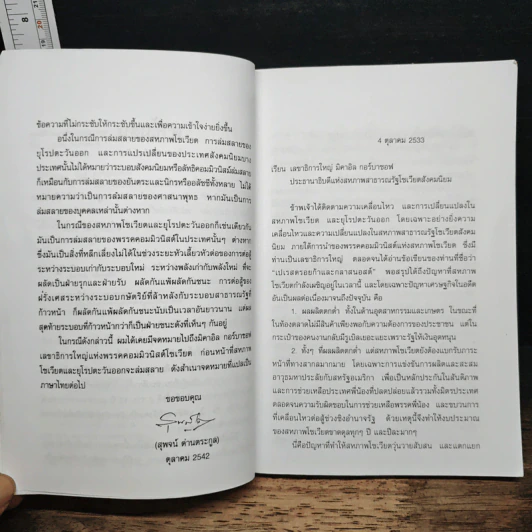 ข้อความที่ไม่กระชับให้กระชับขึ้นและเพื่อความเข้าใจง่ายยิ่งขึ้น
อนึ่งในกรณีการล่มสลายของสหภาพโซเวียต การล่มสลายของ
ยุโรปตะวันออก และการแปรเปลี่ยนของประเทศสังคมนิยมบาง
ประเทศนั้นไม่ได้หมายว่าระบอบสังคมนิยมหรือลัทธิคอมมิวนิสต์ล่มสลาย
ก็เหมือนกับการล่มสลายของอันตระและนิกรหรืออลัชชีทั้งหลาย ไม่ได้
หมายความว่าเป็นการล่มสลายของศาสนาพุทธ หากมันเป็นการ
ล่มสลายของบุคคลเหล่านั้นต่างหาก
ในกรณีของสหภาพโซเวียตและยุโรปตะวันออกก็เช่นเดียวกัน
มันเป็นการล่มสลายของพรรคคอมมิวนิสต์ในประเทศนั้นๆ ต่างหาก
ซึ่งมันเป็นสิ่งที่หลีกเลี่ยงไม่ได้ในช่วงระยะหัวเลี้ยวหัวต่อของการต่อสู้
ระหว่างระบอบเก่ากับระบอบใหม่ ระหว่างพลังเก่ากับพลังใหม่ ที่จะ
ผลัดเป็นฝ่ายรุกและฝ่ายรับ ผลัดกันแพ้ผลัดกันชนะ การต่อสู้ของ
ฝรั่งเศสระหว่างระบอบกษัตริย์ที่ล้าหลังกับระบอบสาธารณรัฐที่
ก้าวหน้า ก็ผลัดกันแพ้ผลัดกันชนะนับเป็นเวลาอันยาวนาน แต่ผล
สุดท้ายระบอบที่ก้าวหน้ากว่าก็เป็นฝ่ายชนะดังที่เห็นๆ กันอยู่
ในกรณีดังกล่าวนี้ ผมได้เคยมีจดหมายไปถึงมิคาอิล กอร์บาชอฟ
เลขาธิการใหญ่แห่งพรรคคอมมิวนิสต์โซเวียต ก่อนหน้าที่สหภาพ
โซเวียตและยุโรปตะวันออกจะล่มสลาย ดังสำเนาจดหมายที่แปลเป็น
ภาษาไทยต่อไป
ขอขอบคุณ
(สุพจน์ ด่านตระกูล)
ตุลาคม 2542
4 ตุลาคม 2533
เรียน เลขาธิการใหญ่ มิคาอิล กอร์บาชอฟ
ประธานาธิบดีแห่งสหภาพสาธารณรัฐโซเวียตสังคมนิยม
ข้าพเจ้าได้ติดตามความเคลื่อนไหว และการเปลี่ยนแปลงใน
สหภาพโซเวียต และยุโรปตะวันออก โดยเฉพาะอย่างยิ่งความ
เคลื่อนไหวและความเปลี่ยนแปลงในสหภาพสาธารณรัฐโซเวียตสังคม
นิยม ภายใต้การนำของพรรคคอมมิวนิสต์แห่งสหภาพโซเวียต ซึ่งมี
ท่านเป็นเลขาธิการใหญ่ ตลอดจนได้อ่านข้อเขียนของท่านที่ชื่อว่า
“เปเรสตรอยก้าและกลาสนอสต์” พอสรุปได้ถึงปัญหาที่สหภาพ
โซเวียตกำลังเผชิญอยู่ในเวลานี้ และโดยเฉพาะปัญหาเศรษฐกิจในอดีต
อันเป็นผลต่อเนื่องมาจนถึงปัจจุบัน คือ
1. ผลผลิตตกต่ำ ทั้งในด้านอุตสาหกรรมและเกษตร ในขณะที่
ในท้องตลาดไม่มีสินค้าเพียงพอกับความต้องการของประชาชน แต่ใน
กระเป๋าของคนงานกลับมีรูเบิลเยอะแยะเพราะรัฐให้เงินอุดหนุน
2. ทั้งๆ ที่ผลผลิตตกต่ำ แต่สหภาพโซเวียตยังต้องแบกรับภาระ
หน้าที่ทางสากลมากมาย โดยเฉพาะการแข่งขันการผลิตและสะสม
อาวุธมหาประลัยกับสหรัฐอเมริกา เพื่อเป็นหลักประกันในสันติภาพ
และการช่วยเหลือประเทศพี่น้องที่ปลดปล่อยแล้วรวมทั้งมิตรประเทศ
ตลอดจนความรับผิดชอบในการช่วยเหลือพรรคพี่น้อง และขบวนการ
ที่เคลื่อนไหวต่อสู้ช่วงชิงอำนาจรัฐ ด้วยเหตุนี้จึงทำให้งบประมาณ
ของสหภาพโซเวียตขาดดุลทุกๆ ปี และปีละมากๆ
นี่คือปัญหาที่ทำให้สหภาพโซเวียตวุ่นวายสับสน และแตกแยก